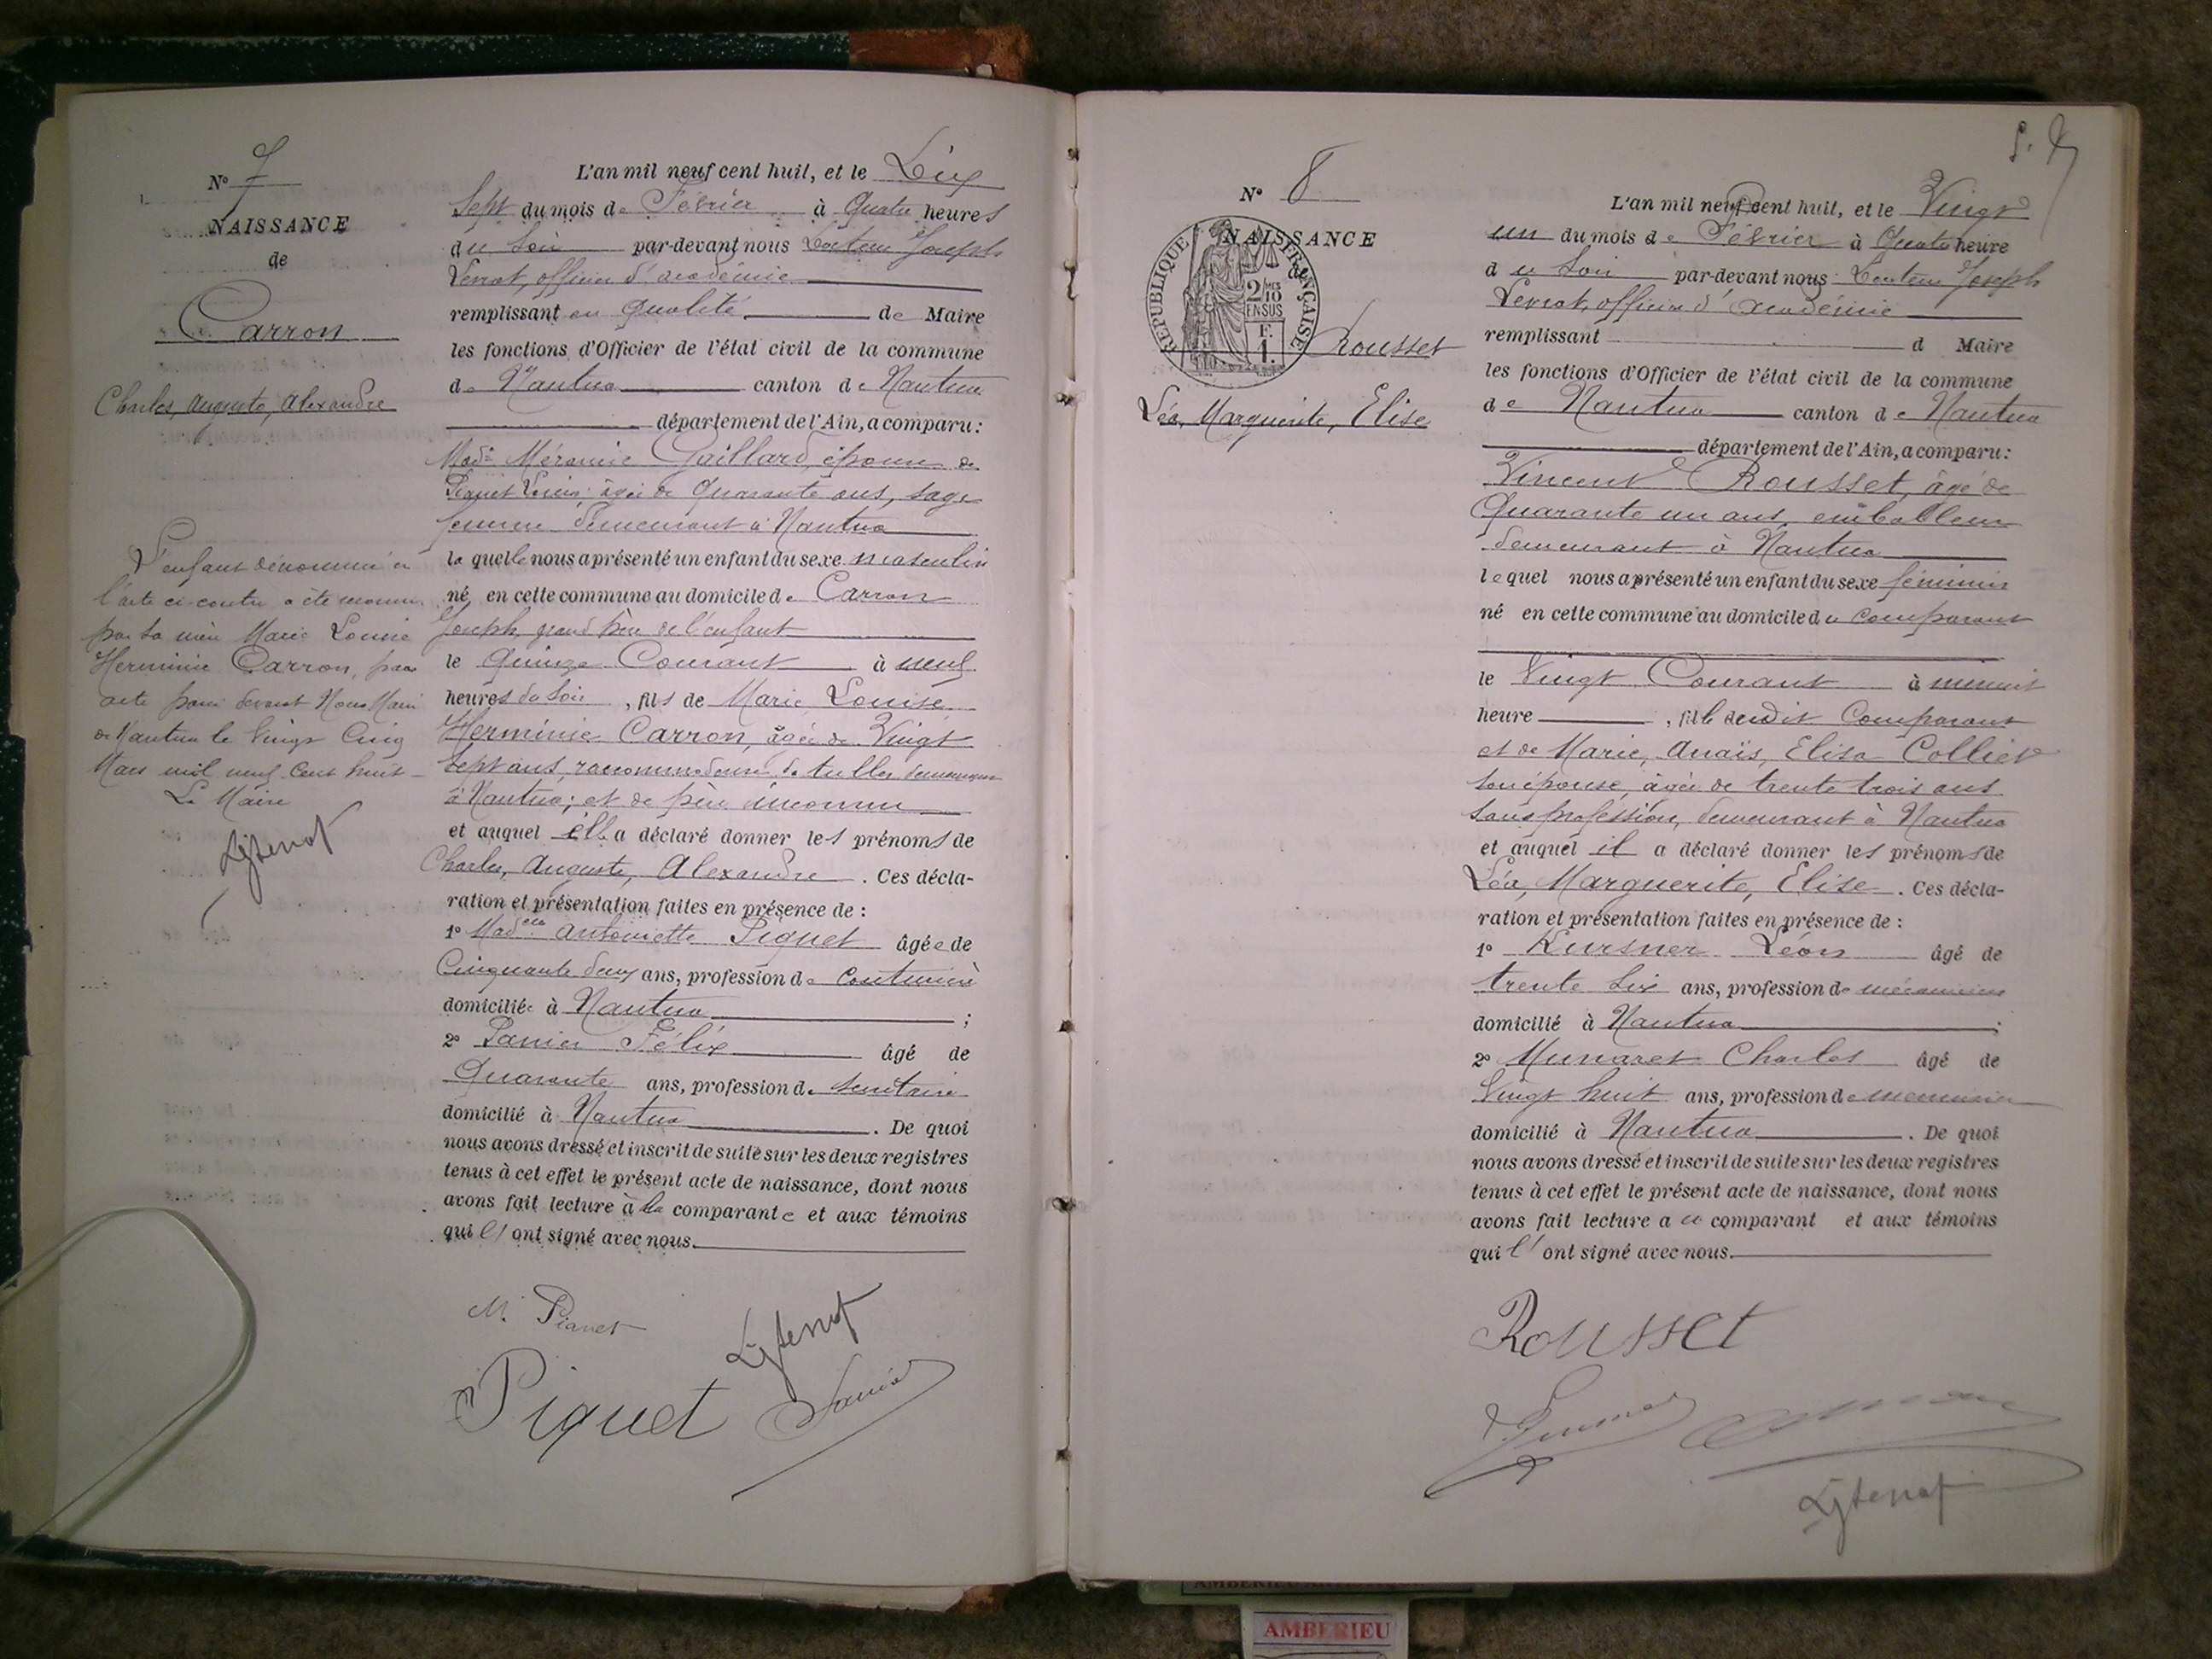 N° 7
NAISSANCE
de
Carron
Charles, Auguste, Alexandre
L'enfant dénommé en
l'acte ci-contre a été reconnu
par sa mère Marie Louise
Herminie Carron, par
acte passé devant Nous Maire
de Nantua le Vingt Cinq
Mars mil neuf cent huit
Le Maire
L'an mil neuf cent huit, et le Dix
Sept du mois de Février à Quatre heures
du Soir par-devant nous Docteur Joseph
officier d'académie
remplissant en qualité de Maire
les fonctions d'Officier de l'état civil de la commune
de Nantua canton de Nantua
département de l'Ain, a comparu :
Made Gaillard, épouse de
âgée de Quarante ans, sage
femme demeurant à Nantua
laquelle nous a présenté un enfant du sexe masculin
né en cette commune au domicile de Carron
Joseph, grand père de l'enfant
le quinze Courant à neuf
heures du soir, fils de Marie Louise
Herminie Carron, âgée de Vingt
sept ans, raccommodeuse de tulles demeurant
à Nantua ; et de père inconnu
et auquel elle a déclaré donner les prénoms de
Charles, Auguste, Alexandre. Ces décla-
ration et présentation faites en présence de :
1° Madelle Antoinette Piquet âgée de
Cinquante deux ans, profession de Couturière
domiciliée à Nantua ;
2° Janier Félix âgé de
Quarante ans, profession de secrétaire
domicilié à Nantua. De quoi
nous avons dressé et inscrit de suite sur les deux registres
tenus à cet effet le présent acte de naissance, dont nous
avons fait lecture à la comparante et aux témoins
qui l'ont signé avec nous.
Piquet
Janier
N° 8
NAISSANCE
de
REPUBLIQUE FRANÇAISE
2/10 EN SUS
Rousset
Léa, Marguerite, Elise
L'an mil neuf cent huit, et le Vingt
un du mois de Février à Quatre heure
du Soir par-devant nous Docteur Joseph
officier d'académie
remplissant d Maire
les fonctions d'Officier de l'état civil de la commune
de Nantua canton de Nantua
département de l'Ain, a comparu :
Vincent Rousset, âgé de
Quarante un ans, emballeur
demeurant à Nantua
lequel nous a présenté un enfant du sexe féminin
né en cette commune au domicile du comparant
le Vingt Courant à minuit
heure , fille dudit Comparant
et de Marie, Anaïs, Elisa Collier
son épouse, âgée de trente trois ans
sans profession, demeurant à Nantua
et auquel il a déclaré donner les prénoms de
Léa, Marguerite, Elise. Ces décla-
ration et présentation faites en présence de :
1° Kursner Léon âgé de
trente six ans, profession de mécanicien
domicilié à Nantua ;
2° Munaret Charles âgé de
Vingt huit ans, profession de menuisier
domicilié à Nantua. De quoi
nous avons dressé et inscrit de suite sur les deux registres
tenus à cet effet le présent acte de naissance, dont nous
avons fait lecture a u comparant et aux témoins
qui l'ont signé avec nous.
Rousset
AMBERIEU